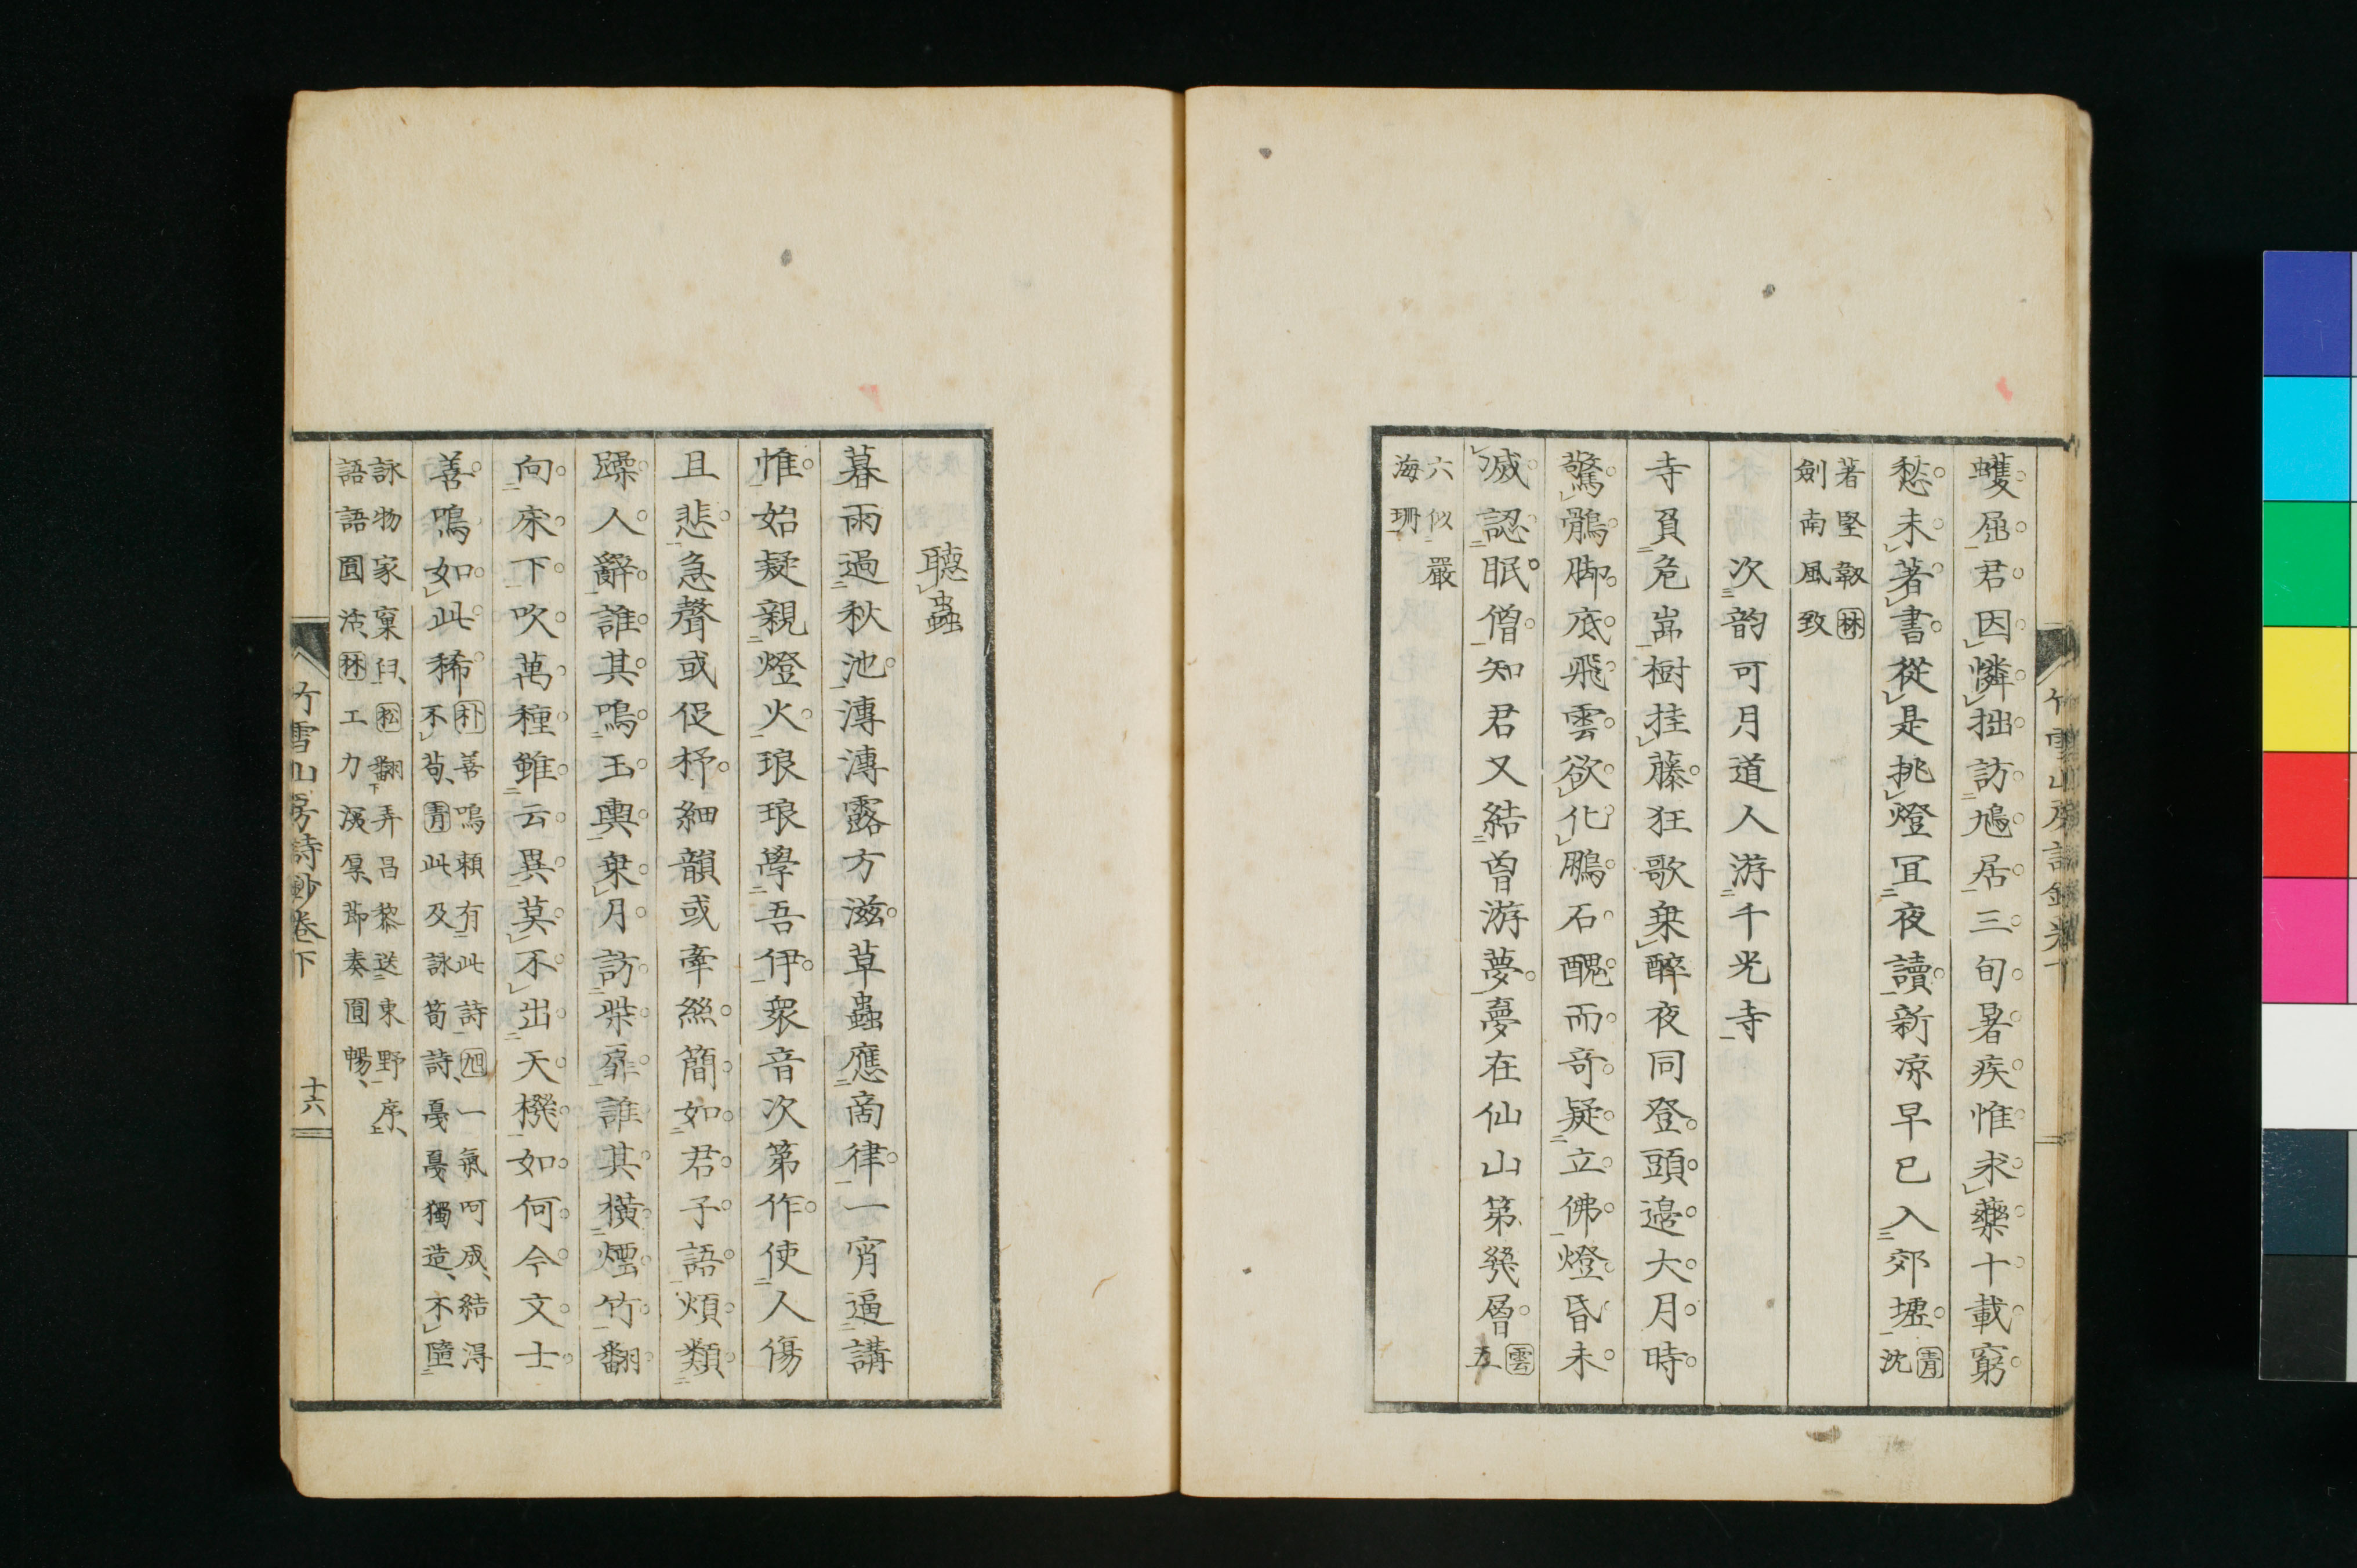 蠖屈君因憐拙訪鳩居三旬暑疾惟求藥十載窮
愁未著書從是挑燈冝夜讀新凉早已入郊墟 青 沈
著堅韌 林
劍南風致
次韵可月道人游千光寺
寺負危嵓樹挂藤狂歌乗醉夜同登頭邉大月時
驚鶻脚底飛雲欲化鵬石醜而竒疑立佛燈昏未
滅認眠僧知君又結曽游夢夢在仙山第幾層 雲 五
六似嚴
海珊
聽蟲
暮雨過秋池漙漙露方滋草蟲應商律一宵逼講
惟始疑親燈火琅琅學吾伊衆音次第作使人傷
且悲急聲或促杼細韻或牽絲簡如君子語煩類
躁人辭誰其鳴玉輿乗月訪柴扉誰其横煙竹翻
向床下吹萬種雖云異莫不出天機如何今文士
善鳴如此稀 朴 善鳴頼有此詩 旭 一氣呵成、結得
不苟、 青 此及詠筍詩、戛戛獨造、不墮
詠物家窠臼、 松 翻弄昌黎送東野序、
語語圓活、 林 工力渾厚、節奏圓暢、
竹雪山房詩鈔卷下 十六